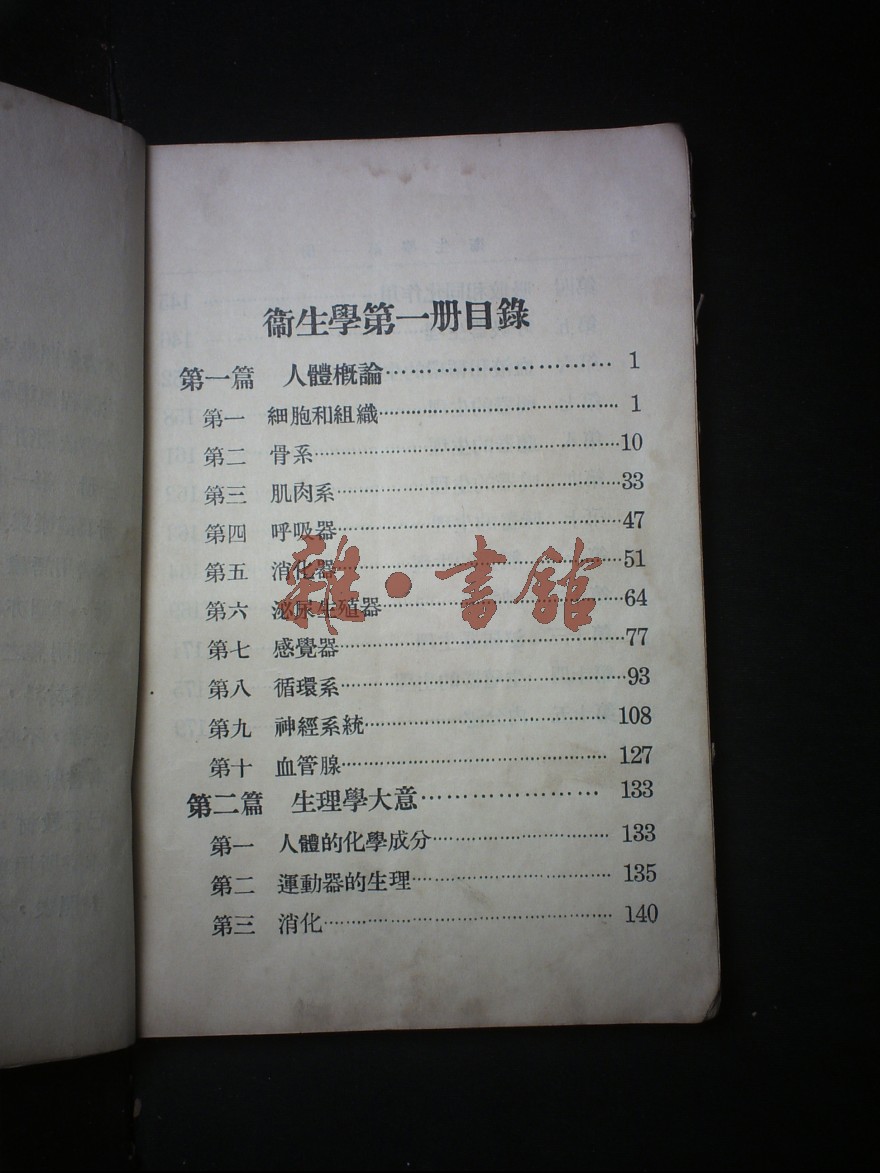 衞生學第一册目錄
第一篇 人體槪論………………………1
第一 細胞和組織………………………1
第二 骨系………………………10
第三 肌肉系………………………33
第四 呼吸器………………………47
第五 消化器………………………51
第六 泌尿生殖器………………………64
第七 感覺器………………………77
第八 循環系………………………93
第九 神經系統………………………108
第十 血管腺………………………127
第二篇 生理學大意………………………133
第一 人體的化學成分………………………133
第二 運動器的生理………………………135
第三 消化………………………140
雜·書館